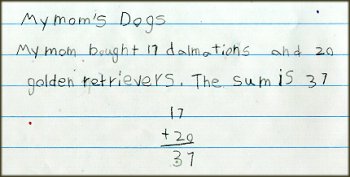 My mom's Dogs
My mom bought 17 dalmations and 20
golden retrievers. The sum is 37
17
+ 20
37